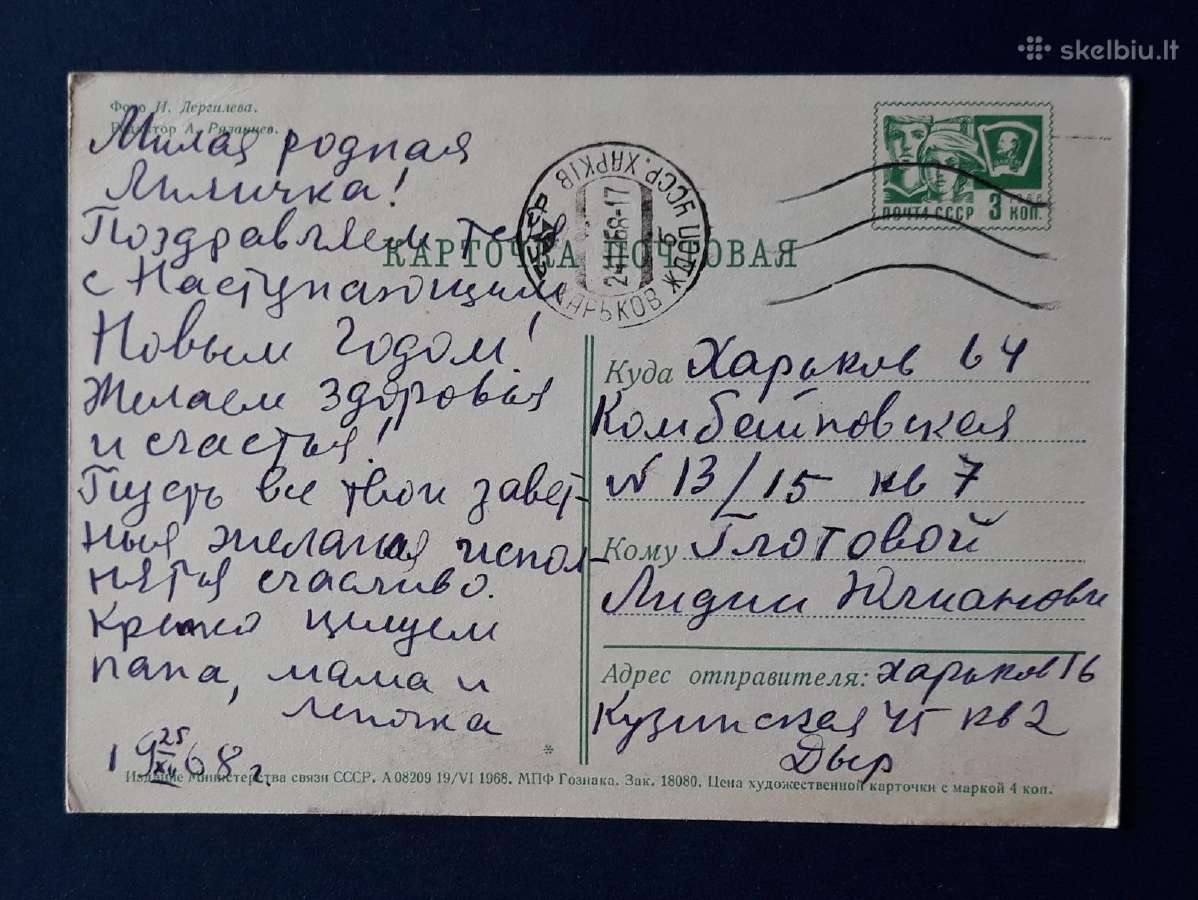 skelbiu.lt
Фото И. Дергилева.
Редактор А. Рязанцев.
Милая родная
Лиличка!
Поздравляем Тебя
с Наступающим
Новым Годом!
Желаем здоровья
и счастья!
Пусть все твои завет-
ные желания испол-
нятся счастливо.
Крепко целуем
папа, мама и
19 25/XII 68 г.
КАРТОЧКА ПОЧТОВАЯ
ХАРЬКОВ ЖДПЦ УССР. ХАРКІВ
ПОЧТА СССР 3 КОП.
Куда Харьков 64
Комбайновская
N 13/15 кв 7
Кому Глотовой
Лидии Юлиановне
Адрес отправителя: Харьков 16
Кузинская 45 кв 2
Дыр
Издание Министерства связи СССР. А 08209 19/VI 1968. МПФ Гознака. Зак. 18080. Цена художественной карточки с маркой 4 коп.